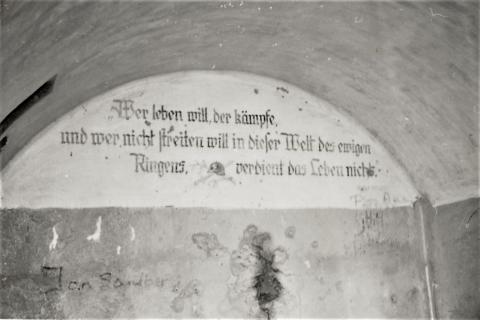 Wer leben will, der kämpfe,
und wer, nicht streiten will in dieser Welt des ewigen
Ringens, verdient das Leben nicht.
Jan